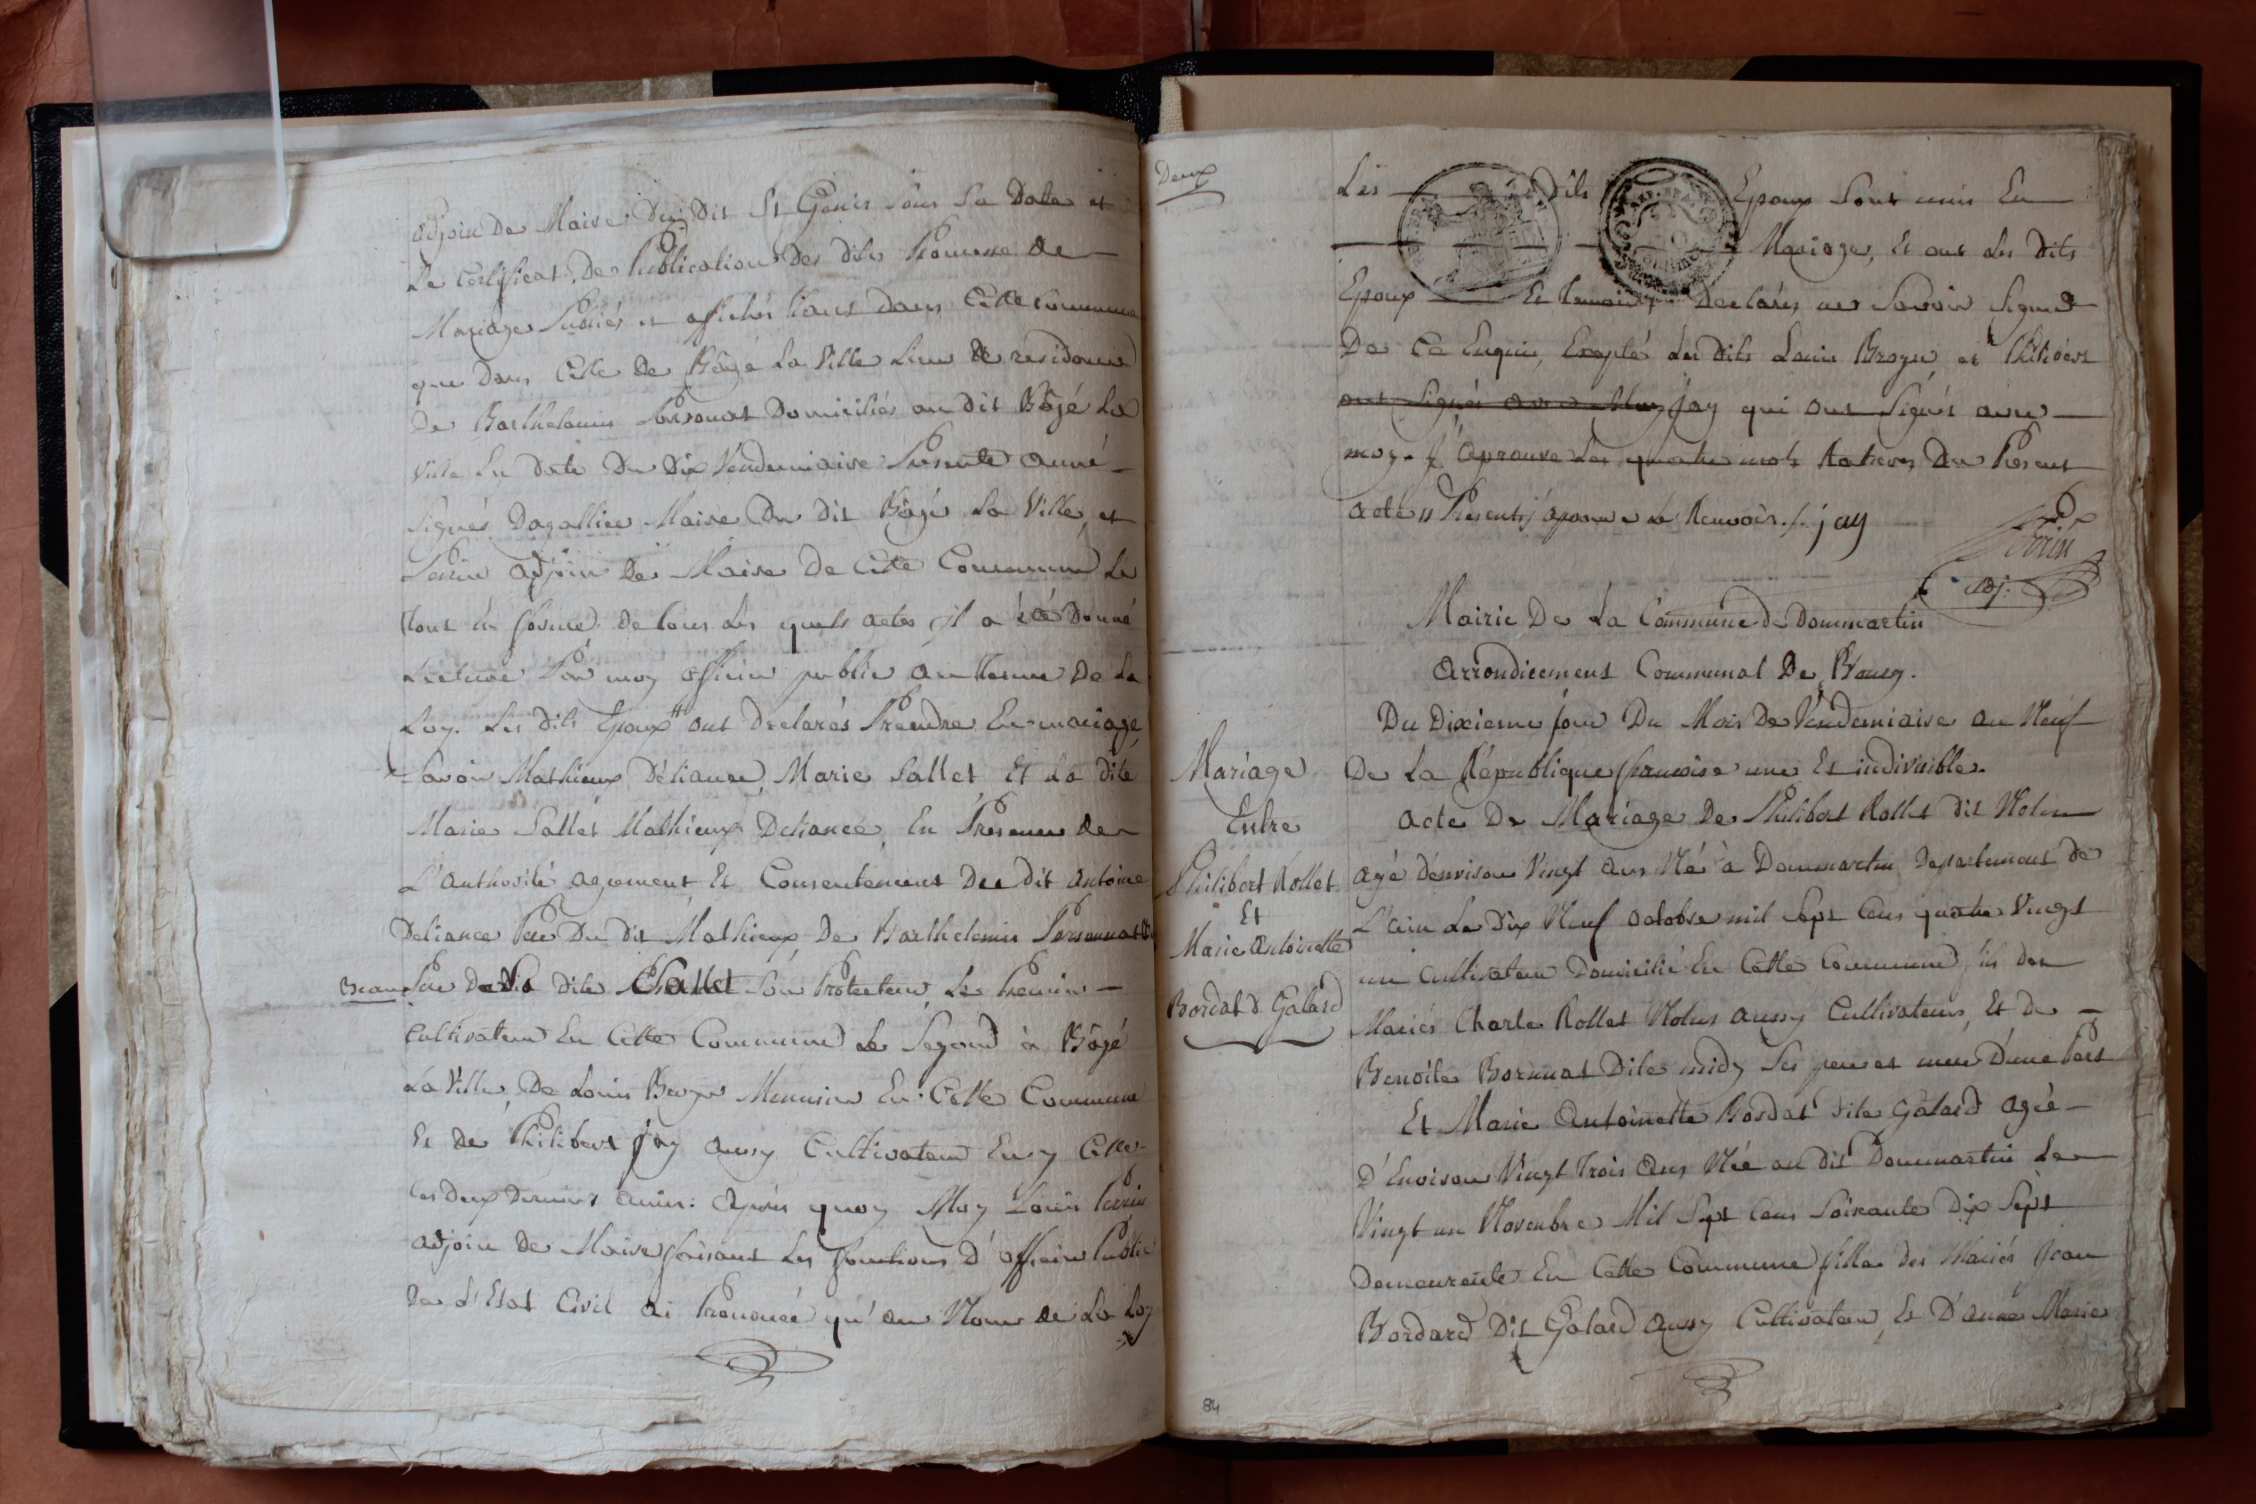 adjoin De Maire Du Dit St Genis Sous Sa Date et
Le Certificat De Publication Des dites Promesse de
Mariage Publiés et affichés tant dans Cette Commune
que Dans Celle De Bâgé La Ville Lieu De residence
De Barthelemis Personnat Domiciliés au dit Bâgé La
Ville En Date Du Dix Vendemiaire Presente année
Signés Dagallier Maire Du dit Bâgé La Ville, et
Perrin adjoin De Maire De Cette Commune Le
Tout én forme. De tous Les quels actes il a été Donné
Lecture Par moy officier public au terme De La
Loy. Les dits Epoux ont Declarés Prendre En mariage
Savoir Mathieux Déliance, Marie Sallet, Et La dite
Marie Sallet Mathieux Deliance, En Presence de
L'authorité agrement Et Consentement Du dit antoine
Deliance Pere Du dit Mathieux De Barthelemis Personnat
Beau Pere De La dite Sallet Son Protecteur, Le Premier
Cultivateur En Cette Commune Le Segond à Bâgé
La Ville, De Louis Broyer Menusier En Cette Commune
Et De Philibert Jay aussy Cultivateur En Cette
les deux derniers amis: après quoy Moy Louis Perrin
adjoin De Maire faisant Les fonctions d'officier Public
De L'Etat Civil ai Prononcé qu'au Nom de La Loy
Deux
Les dits Epoux Sont unis En
Mariage, Et ont Les dits
Epoux Et temoins Declarés ne Savoir Signer
De Ce Enquis, Exepté Les dits Louis Broyer, et Philibert
ont Signés avec Moy Jay qui ont Signés avec
moy. J'aprouve Les quatre mots Ratures Du Present
acte // Presents j'aprouve Le Renvoir ./. jay
Perrin
adj.
Mairie De La Commune de Dommartin
arrondicement Communal De Bourg.
Du Dixieme jour Du Mois De Vendemiaire an Neuf
De La République francoise une Et indivisible.
Mariage
Entre
Philibert Rollet
Et
Marie Antoinette
Bordat d. Galard
acte De Mariage De Philibert Rollet dit Molus
agé d'environ Vingt ans Né à Dommartin Departement de
L'ain Le Dix Neuf octobre mil Sept Cens quatre Vingt
un Cultivateur Domicilié En Cette Commune, fils des
Mariés Charle Rollet Molus aussy Cultivateur, Et De
Benoite Bornat Dite midy Ses pere et mere D'une Part
Et Marie Antoinette Bordat dite Galard agée
d'Environ Vingt Trois ans Née au dit Dommartin Le
Vingt un Novembre Mil Sept Cens Soixante Dix Sept
Demeurante En Cette Commune fille des Mariés Jean
Bordard Dit Galard aussy Cultivateur, Et D'anne Marie
84